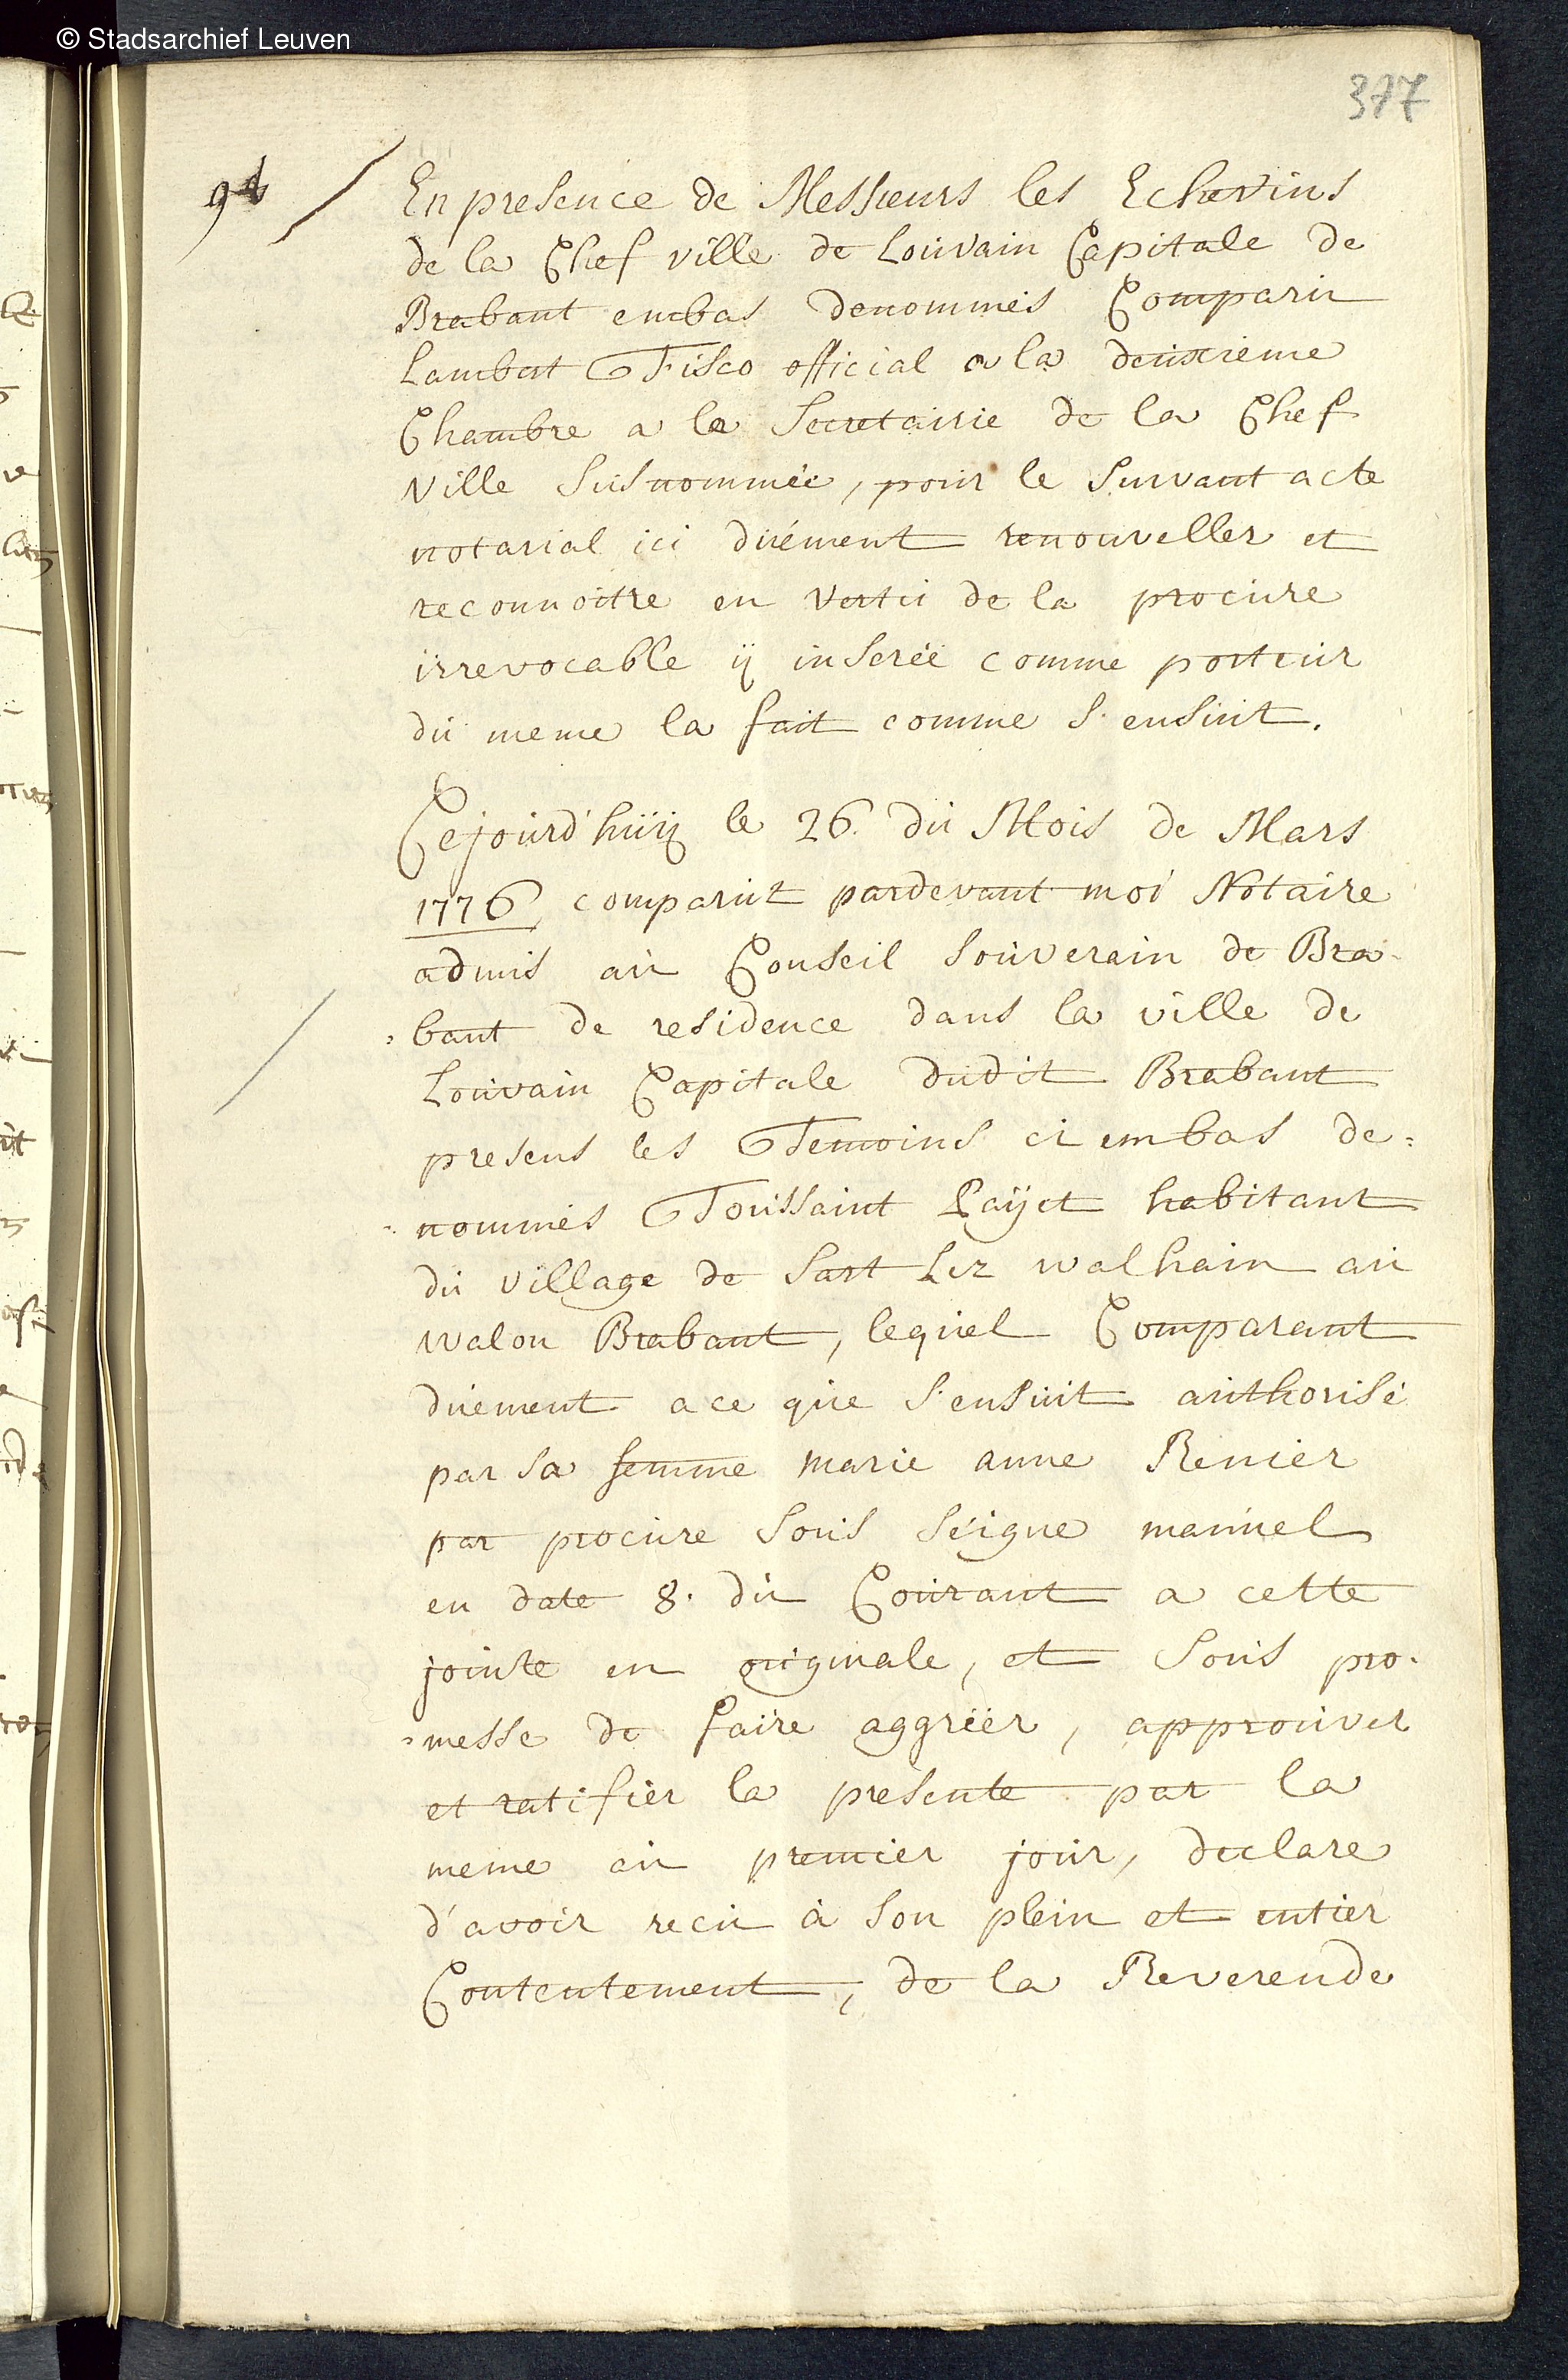 © Stadsarchief Leuven
377
En presence de Messieurs les Echevins
de la Chef ville de Louvain Capitale de
Brabant embas denommés Comparu
Lambert Fisco official a la deuxieme
Chambre a la Secretairie de la Chef
Ville susnommée, pour le suivant acte
notarial ici duëment renouveller et
reconnoitre en vertu de la procure
irrevocable ij inserée comme porteur
du meme la fait comme s'ensuit.
Cejourd'huij le 26. du Mois de Mars
1776 comparut pardevant moi Notaire
admis au Conseil Souverain de Bra-
bant de residence dans la ville de
Louvain Capitale dudit Brabant
presens les Temoins ci embas de=
nommés Toussaint Paÿet habitant
du village de Sart Lez walhain au
walon Brabant, lequel Comparant
duement a ce que s'ensuit authorisé
par sa femme marie anne Renier
par procure sous séigne manuel
en date 8. du Courant a cette
jointe en originale, et sous pro-
messe de faire aggréer, approuver
et ratifier la presente par la
meme au premier jour, declare
d'avoir recu à son plein et entier
Contentement, de la Reverende